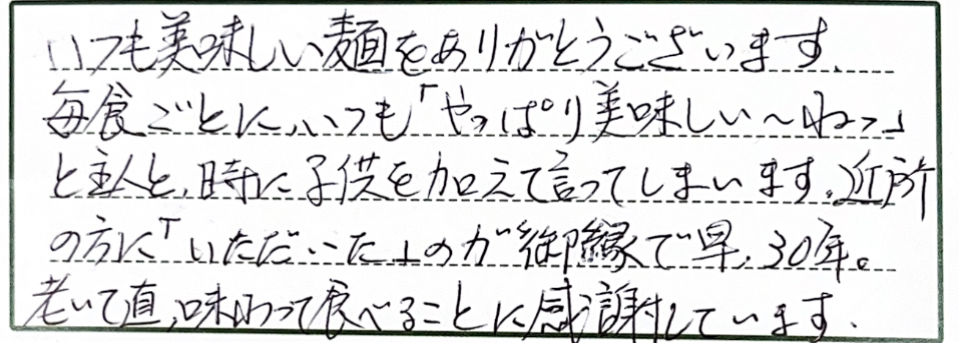 いつも美味しい麺をありがとうございます。
毎食ごとに、いつも「やっぱり美味しい〜ねっ」
と主人と、時に子供を加えて言ってしまいます。近所
の方に「いただいた」のが御縁で早、30年。
老いて直、味わって食べることに感謝しています。